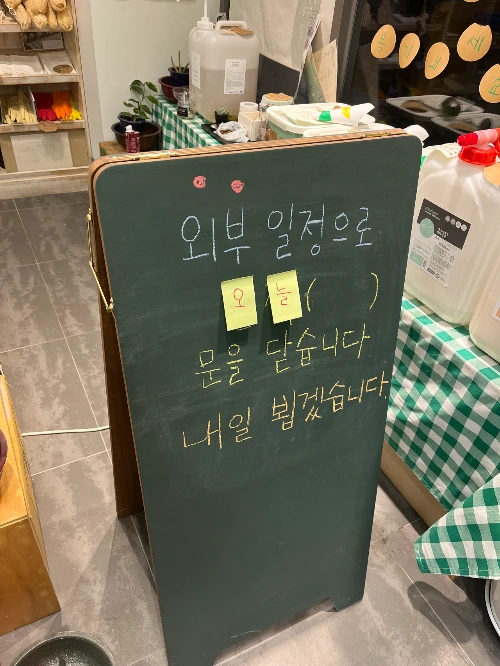 외부 일정으로
오늘 (      )
문을 닫습니다.
내일 뵙겠습니다.